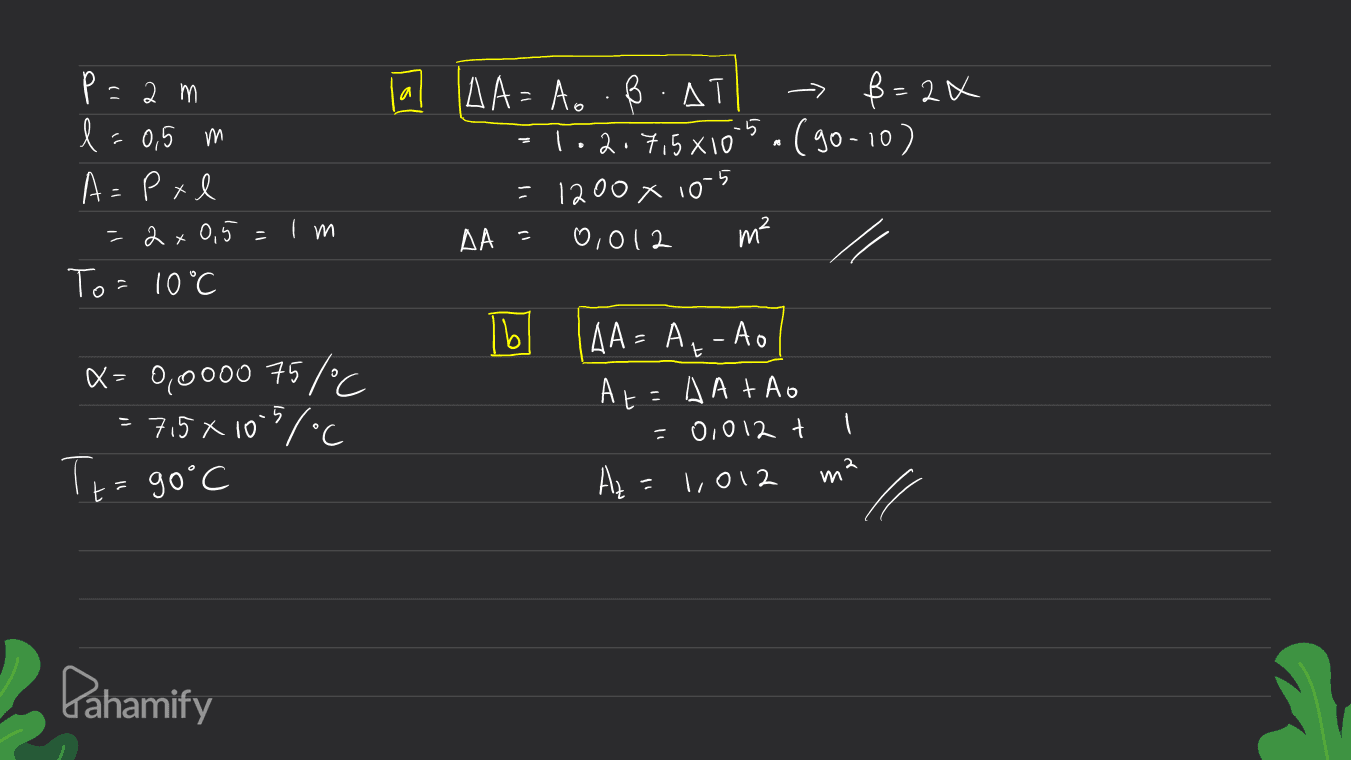 P = 2 m
l = 0,5 m
A = P x l
= 2 x 0,5 = 1 m
To = 10°C
α = 0,0000 75 /°C
= 7,5 x 10^-5 /°C
Tt = 90°C
a ΔA = Ao . β . ΔT → β = 2α
= 1 . 2 . 7,5 x 10^-5 . (90 - 10)
= 1200 x 10^-5
ΔA = 0,012 m²
b ΔA = At - Ao
At = ΔA + Ao
= 0,012 + 1
At = 1,012 m²
Pahamify